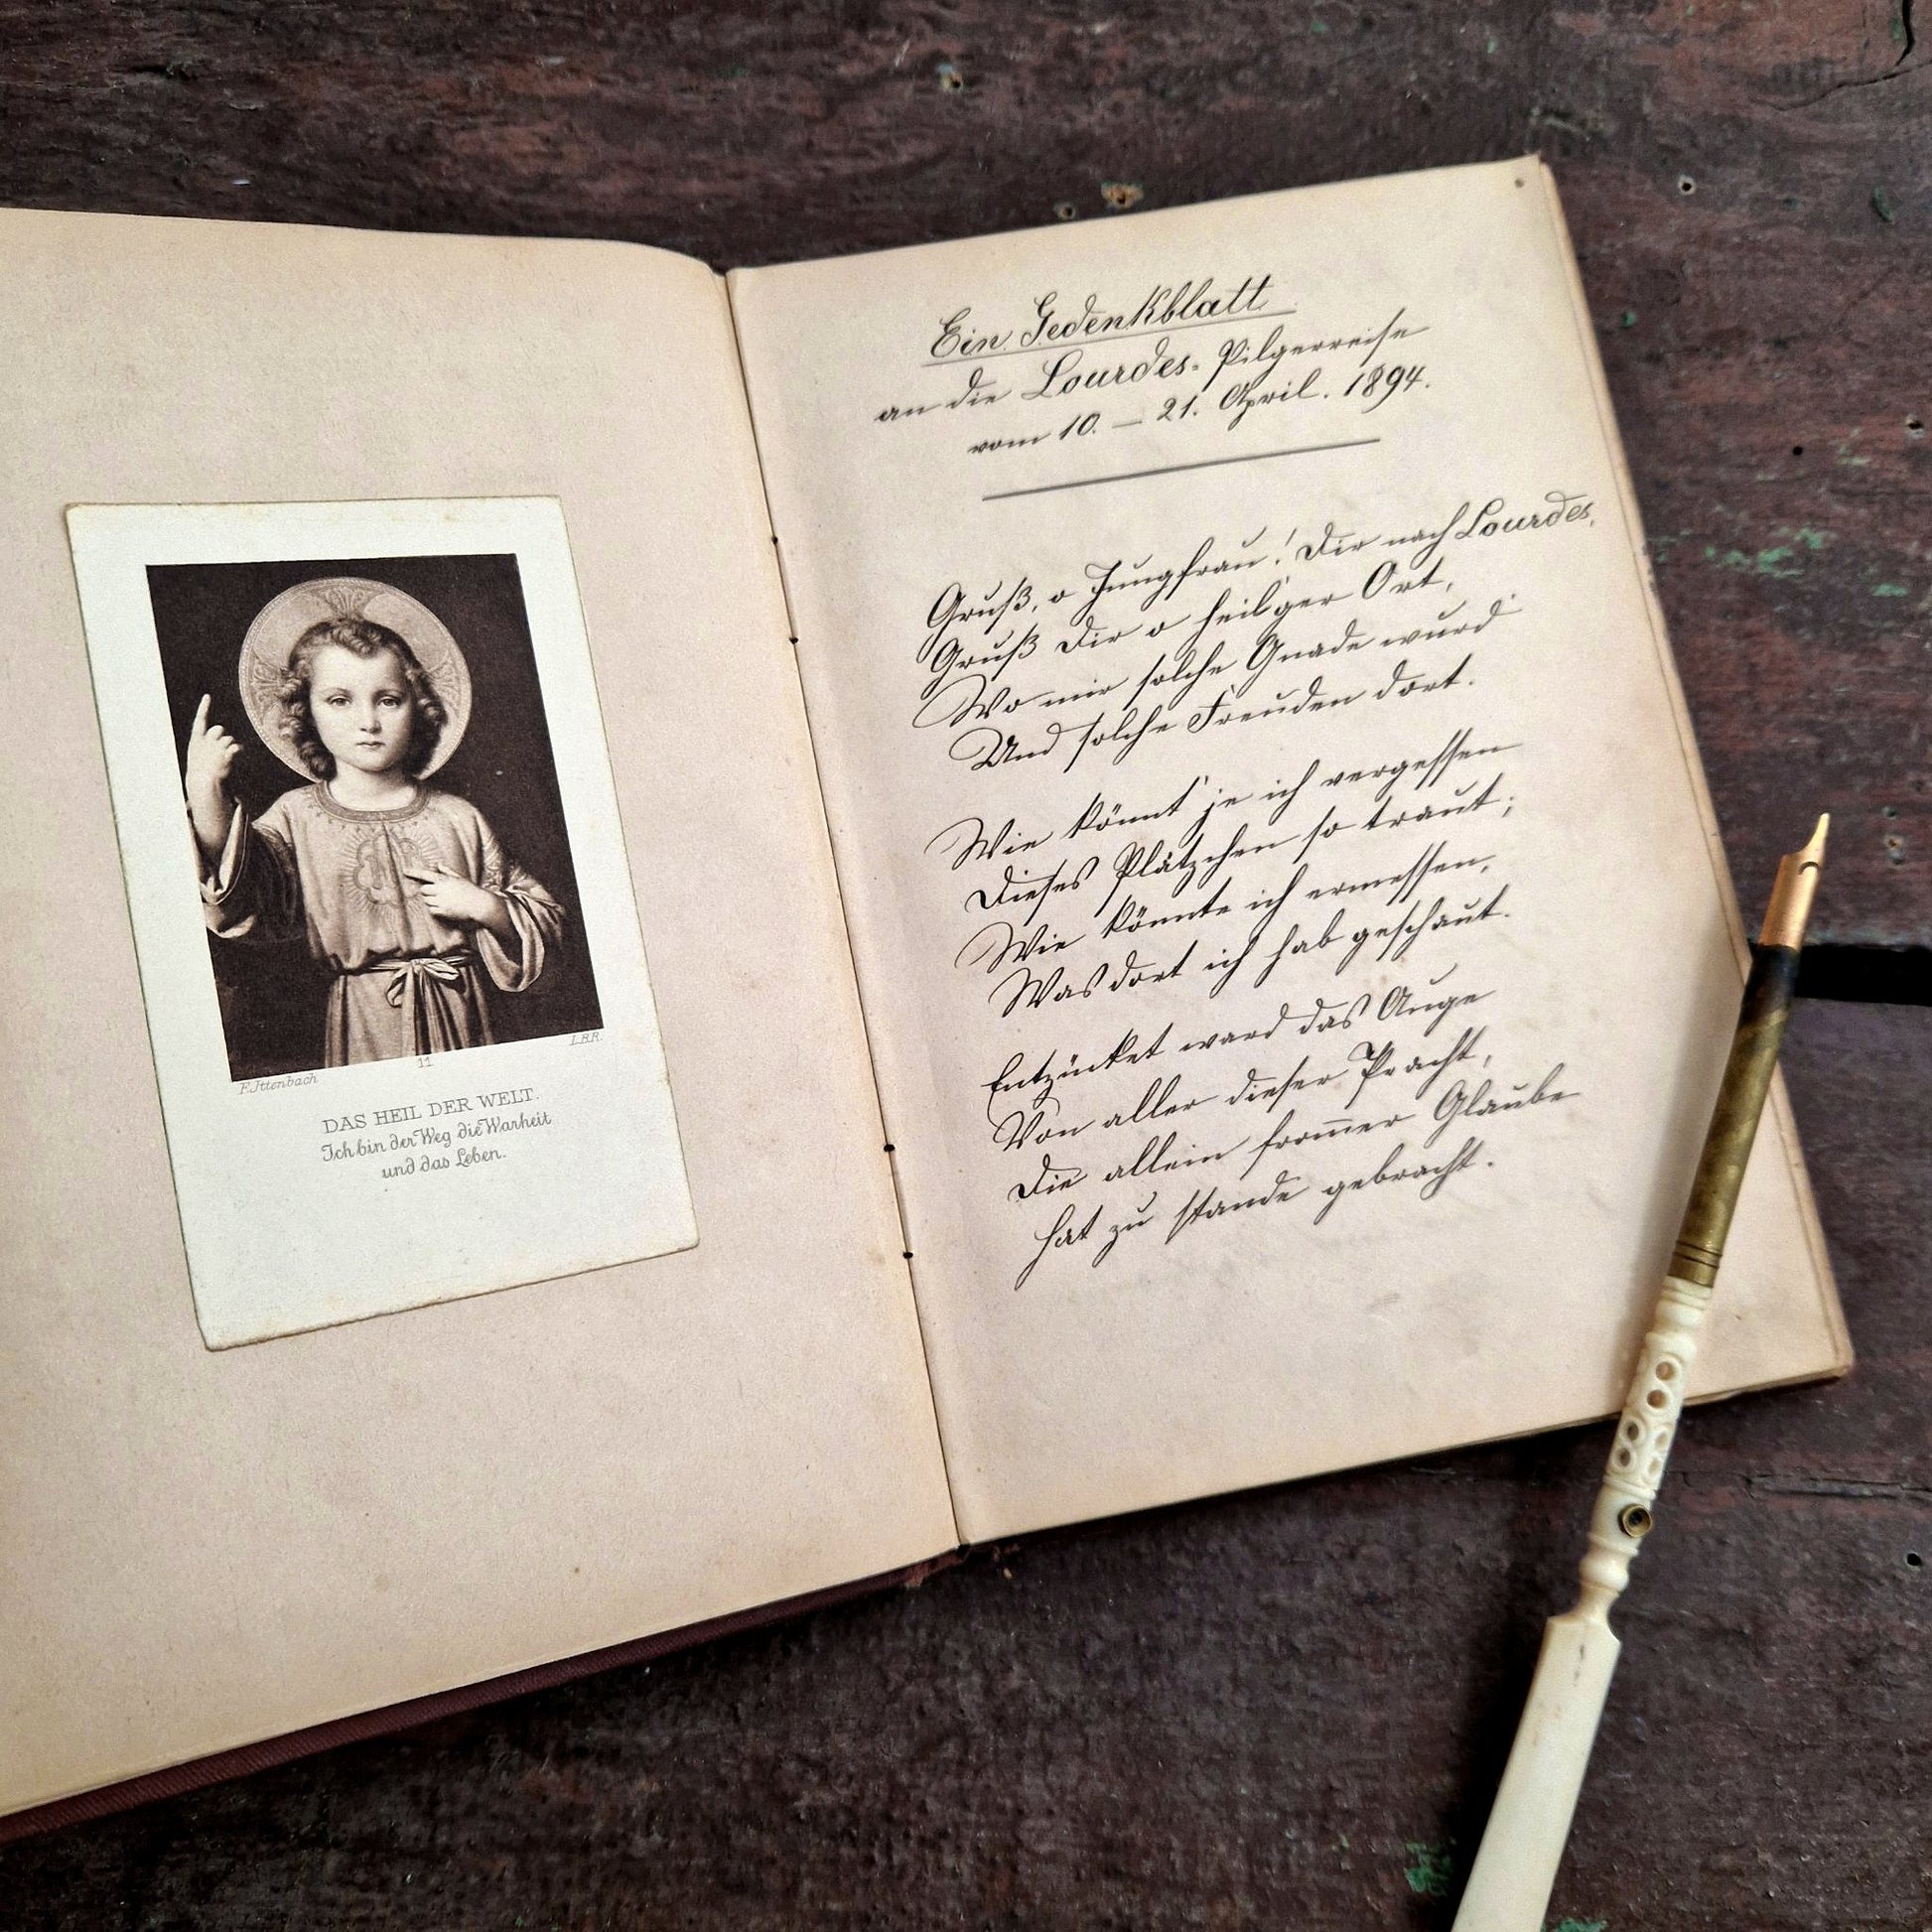 F. Ittenbach
11
I.B.R.
DAS HEIL DER WELT.
Ich bin der Weg die Warheit
und das Leben.
Ein Gedenkblatt
an die Lourdes-Pilgerreise
vom 10. – 21. April. 1894.
Gruß, o Jungfrau! Dir nach Lourdes,
Gruß Dir o heil'ger Ort,
Wo mir solche Gnade wurd'
Und solche Freuden dort.
Wie könnt' je ich vergessen
Dieses Plätzchen so traut;
Wie könnte ich ermessen,
Was dort ich hab geschaut.
Entzücket ward das Auge
Von aller dieser Pracht,
Die allein from̅er Glaube
Hat zu stande gebracht.